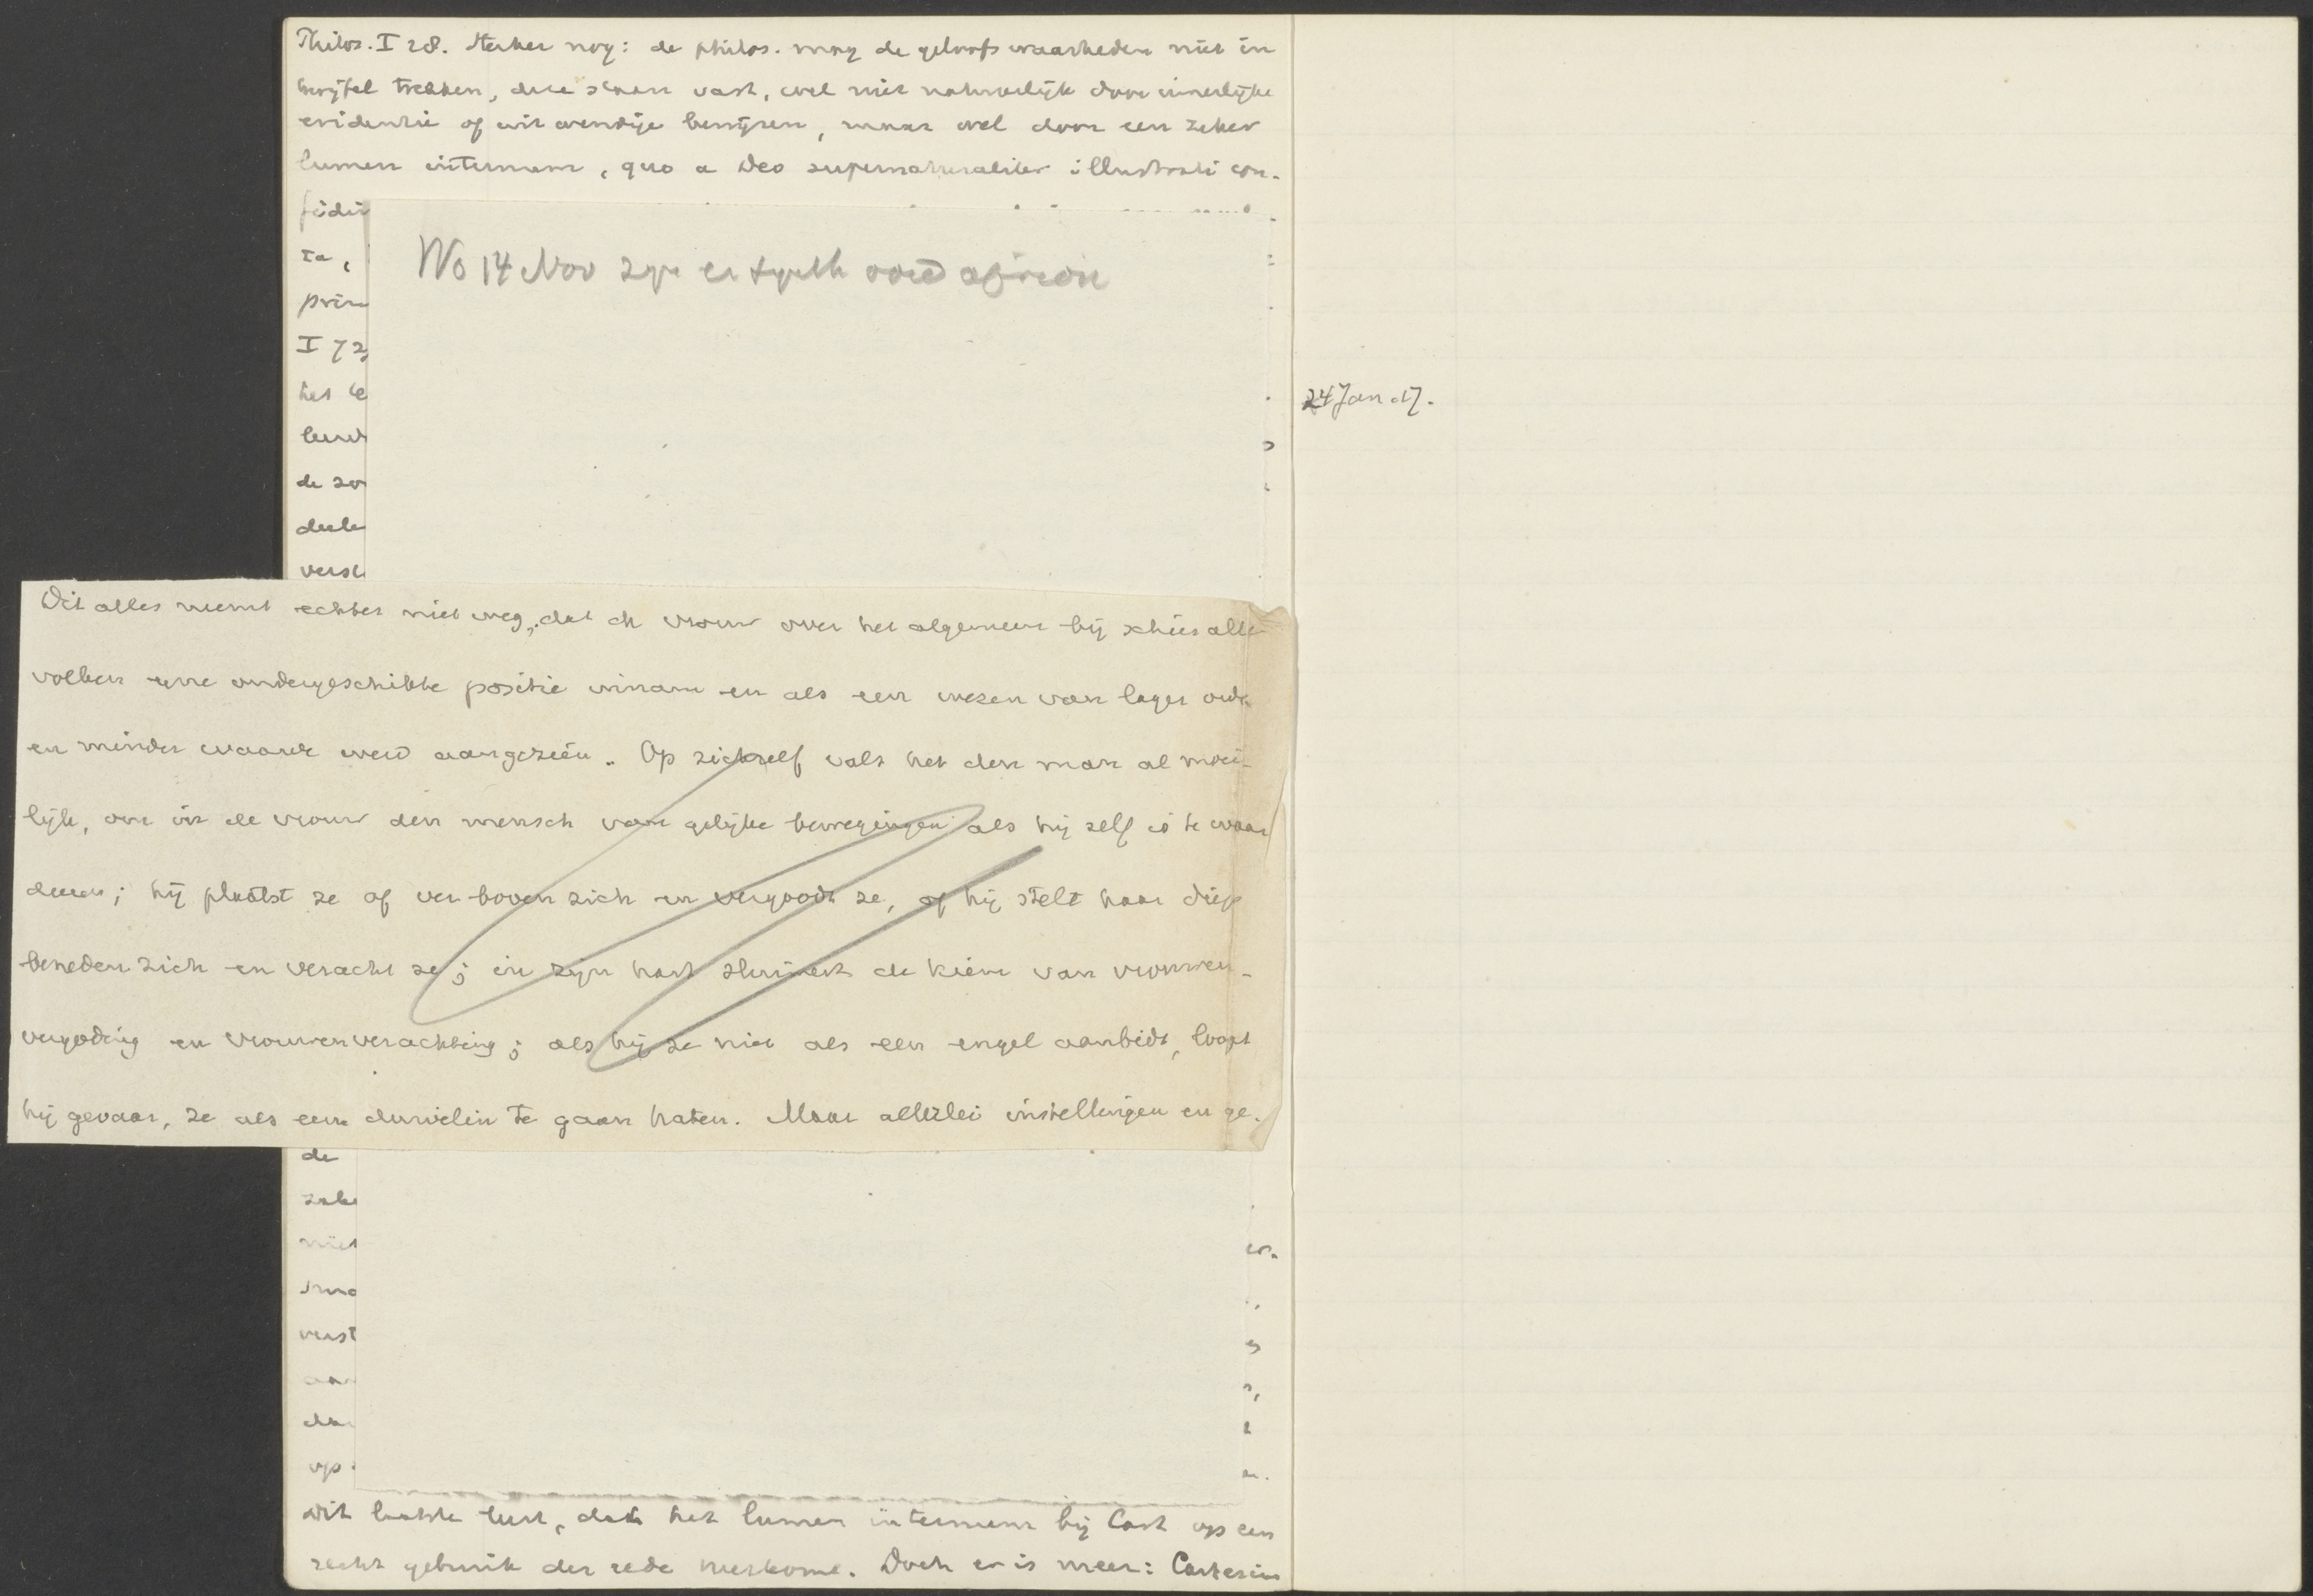 Philos. I 28. Sterker nog: de philos. mag de geloofswaarheden niet in
twijfel trekken, deze staan vast, wel niet natuurlijk door innerlijke
evidentie of uitwendige bewijzen, maar wel door een zeker
lumen internum, quo a Deo supernaturaliter illustrati con-
fidi
ta,
prin
I 72,
het
de zo
deele
versch
Wo 14 Nov
24 Jan. 17.
Dit alles neemt echter niet weg, dat de vrouw over het algemeen bij schier alle
volken eene ondergeschikte positie innam en als een wezen van lager orde
en minder waarde werd aangezien.. Op zichzelf valt het den man al moei-
lijk, om in de vrouw den mensch van gelijke bewegingen als hij zelf is te waar
deeren; hij plaatst ze of ver boven zich en vergoodt ze, of hij stelt haar diep
beneden zich en veracht ze; in zijn hart sluimert de kiem van vrouwen-
vergoding en vrouwenverachting; als hij ze niet als een engel aanbidt, loopt
hij gevaar, ze als een duivelin te gaan haten. Maar allerlei instellingen en ge-
de
zake
niet
verst
aan
da
op
Dit laatste leert, dat het lumen internum bij Cart op een
recht gebruik der rede neerkomt. Doch er is meer: Cartesius